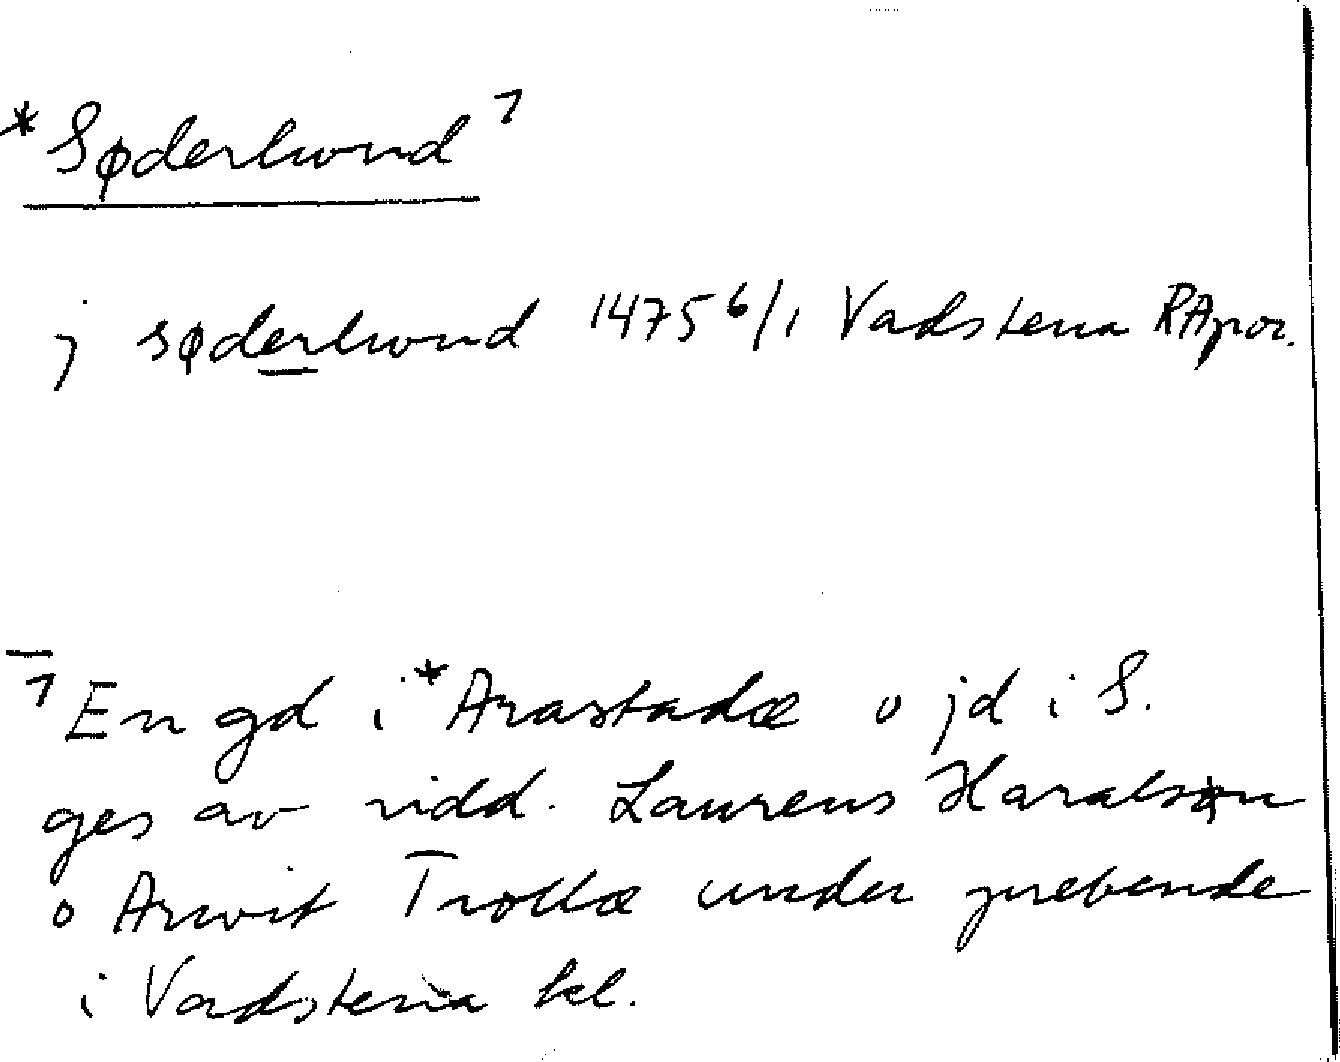 *Søderlwnd ⁊
j søderlwnd 1475 6/1 Vadstena RApor.
⁊ En gd i *Arastadæ o jd i S.
ges av ridd. Laurens Haralson
o Arwit Trollæ under prebende
i Vadstena kl.